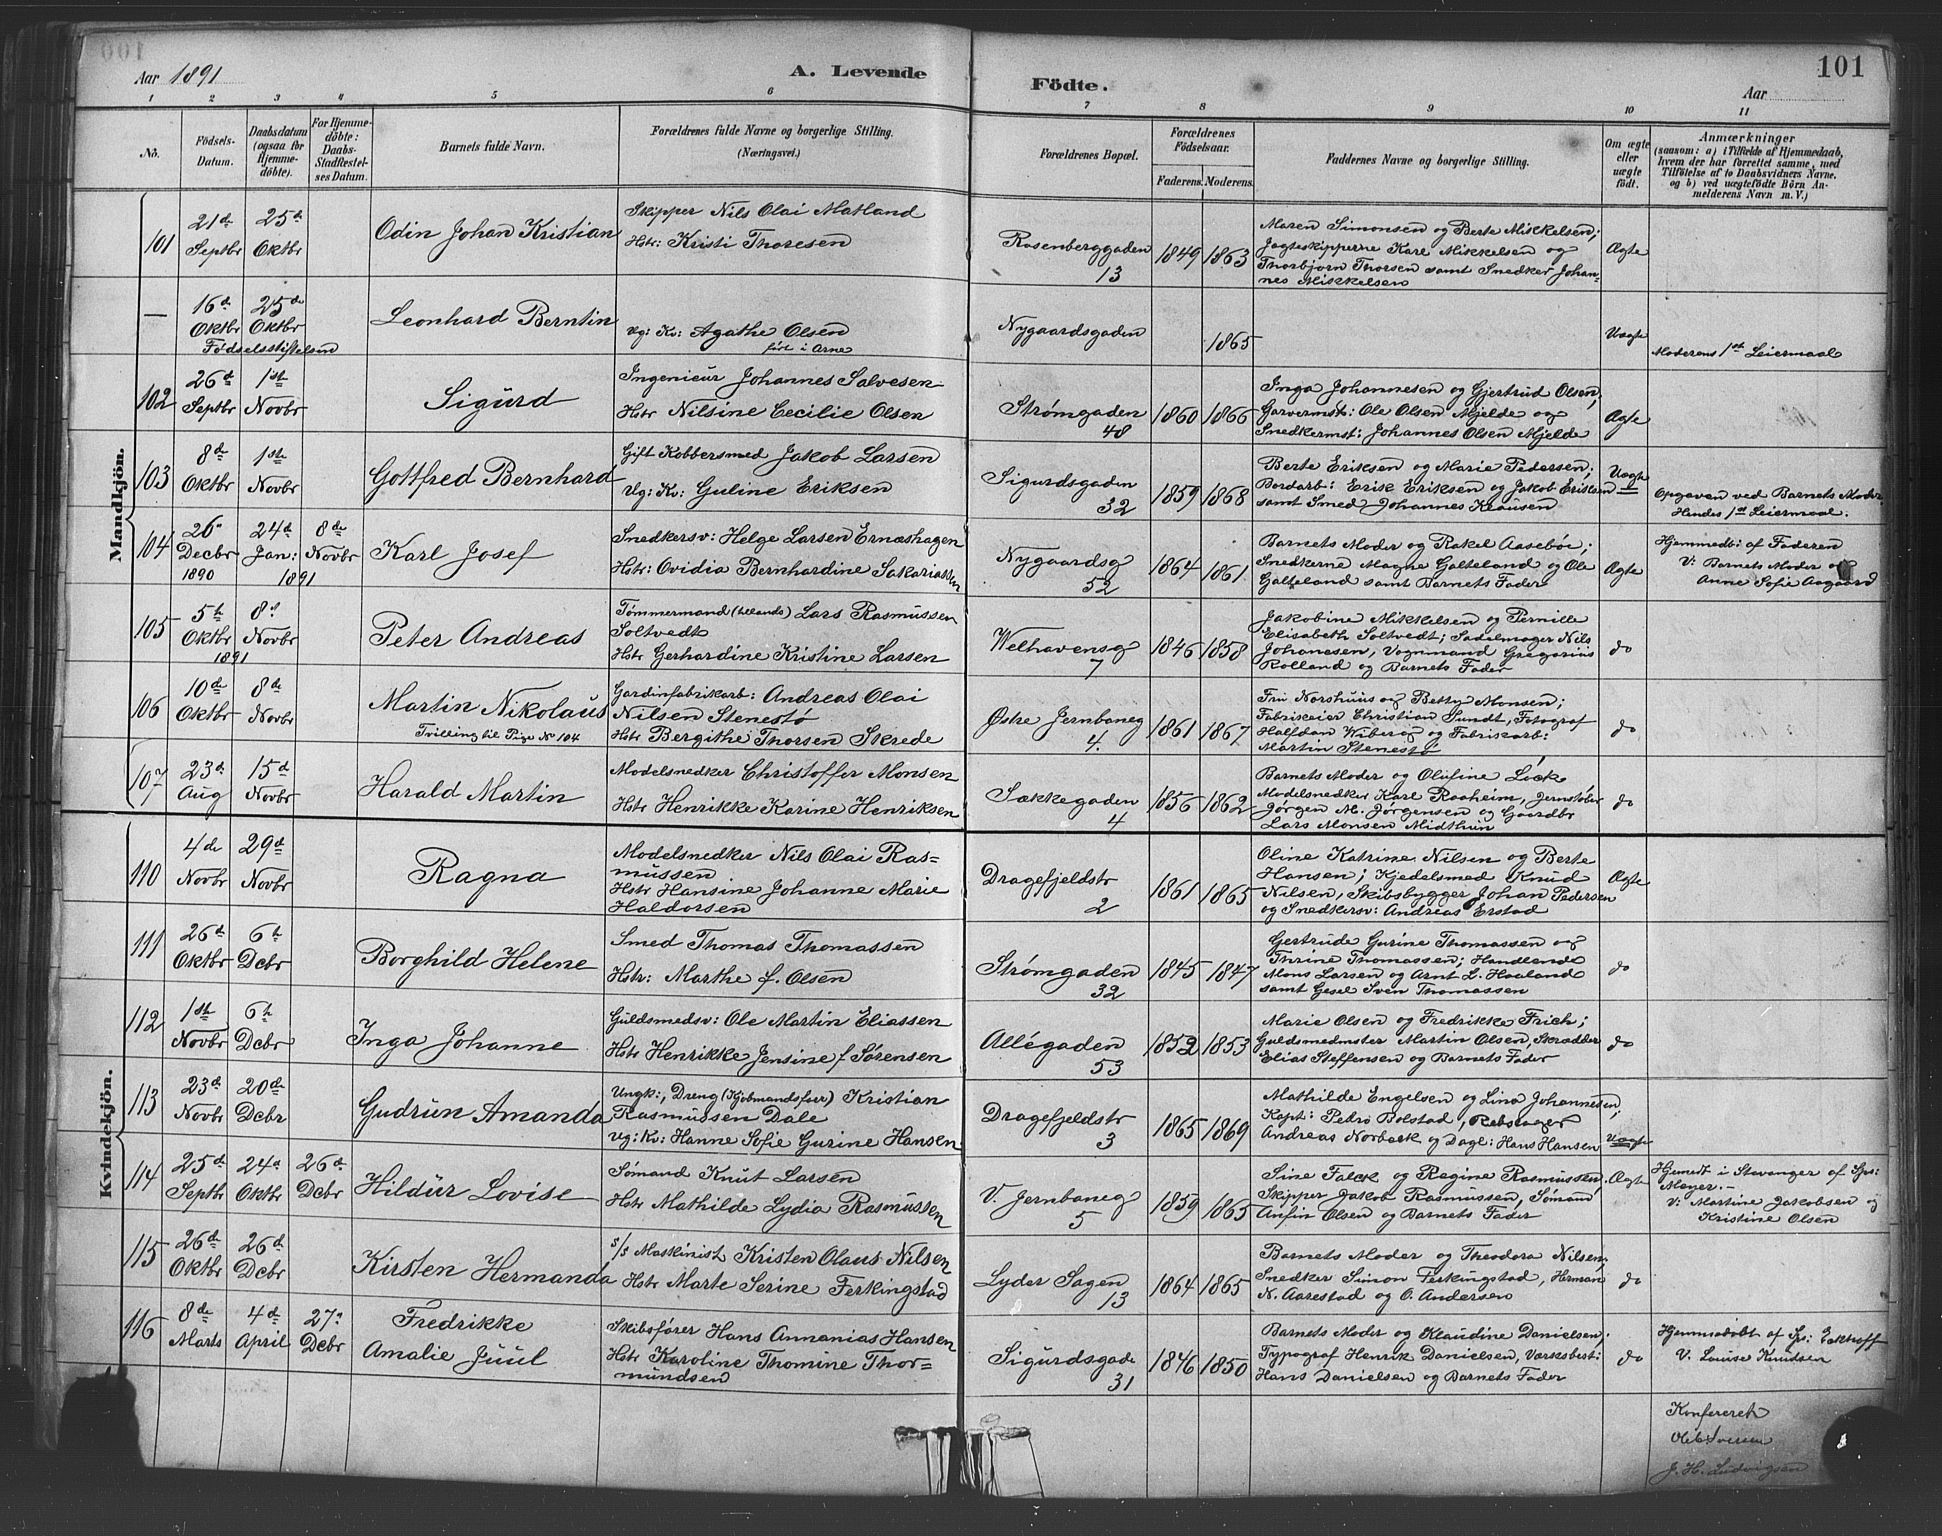 Aar 1891
A. Levende
Födte.
101
Aar
1 2 3 4 5 6 7 8 9 10 11
No.
Födsels-
Datum.
Daabsdatum
(ogsaa for
Hjemme-
döbte).
For Hjemme-
döbte:
Daabs-
Stadfæstel-
ses Datum.
Barnets fulde Navn.
Forældrenes fulde Navne og borgerlige Stilling.
(Næringsvei.)
Forældrenes Bopæl.
Forældrenes
Födselsaar.
Faderens. Moderens.
Faddernes Navne og borgerlige Stilling.
Om ægte
eller
uægte
födt.
Anmærkninger
(saasom: a) i Tilfælde af Hjemmedaab,
hvem der har forrettet samme, med
Tilföielse af to Daabsvidners Navne,
og b) ved uægtefödte Börn An-
melderens Navn m. V.)
Mandkjön.
101
21de Septbr
25de Oktbr
Odin Johan Kristian
Skipper Nils Olai Matland
Hstr: Kristi Thoresen
Rosenberggaden
13
1849 1863
Maren Simonsen og Berte Mikkelsen;
Jagteskipperne Kare Mikkelsen og
Thorbjørn Thorsen samt Snedker Johan-
nes Mikkelsen
Ægte
—
16de Oktbr
25de Oktbr
Fødselsstiftelsen
Leonhard Berntin
Ug: Kv: Agathe Olsen
født i Arne
Nygaardsgaden
1865
Uægte
Moderens 1ste Leiermaal
102
26de Septbr
1ste Novbr
Sigurd
Ingeniør Johannes Salvesen
Hstr Nilsine Cecilie Olsen
Strømgaden
48
1860 1866
Inga Johannesen og Gjertrud Olsen,
Garvermst: Ole Olsen Mjelde og
Snedkermst: Johannes Olsen Mjelde
Ægte
103
8de Oktbr
1ste Novbr
Gottfred Bernhard
Gift Kobbersmed Jakob Larsen
Ug: Kv: Guline Eriksen
Sigurdsgaden
32
1859 1868
Berte Eriksen og Marie Pedersen;
Bordarb: Erik Eriksen og Jakob Eriksen
samt Smed Johannes Klausen
Uægte
Opgaven ved Barnets Moder.
Hendes 1ste Leiermaal.
104
26de Decbr 1890
24de Jan: 1891
8de Novbr
Karl Josef
Snedkersv: Helge Larsen Ernæshagen
Hstr: Ovidia Bernhardine Sakariassen
Nygaardsg
52
1864 1861
Barnets Moder og Rakel Aasebøe;
Snedkerne Magne Galteland og Ole
Galteland samt Barnets Fader
Ægte
Hjemmedbt: af Faderen
V: Barnets Moder og
Anne Sofie Aagaard
105
5te Oktbr 1891
8de Novbr
Peter Andreas
Tømmermand (tillands) Lars Rasmussen
Soltvedt
Hstr Gerhardine Kristine Larsen
Welhavensg
7
1846 1858
Jakobine Mikkelsen og Pernille
Elisabeth Soltvedt; Sadelmager Nils
Johanesen, Vognmand Gregorius
Rolland og Barnets Fader
do
106
10de Oktbr
8de Novbr
Martin Nikolaus
Tvilling til Pige No 104
Gardinfabrikarb: Andreas Olai
Nilsen Stenestø
Hstr Bergithe Thorsen Skrede
Østre Jernbaneg
4.
1861 1867
Fru Norshuus og Betty Monsen;
Fabrikeier Christian Sundt, Fotograf
Halfdan Wiberg og Fabrikarb:
Martin Stenestø
do
107
23de Aug
15de Novbr
Harald Martin
Modelsnedker Christoffer Monsen
Hstr Henrikke Karine Henriksen
Sækkegaden
4
1856 1862
Barnets Moder og Olufine Lock
Modelsnedker Karl Raaheim, Jernstøber
Jørgen M. Jørgensen og Gaardbr
Lars Monsen Midthun
do
Kvindekjön.
110
4de Novbr
29de Novbr
Ragna
Modelsnedker Nils Olai Ras-
mussen
Hstr Hansine Johanne Marie
Haldorsen
Dragefjeldstr
2
1861 1865
Oline Katrine Nilsen og Berte
Hansen; Kjedelsmed Knud
Nilsen, Skibsbygger Johan Pedersen
og Snedkersv: Andreas Erstad
Ægte
111
26de Oktbr
6te Dcbr
Borghild Helene
Smed Thomas Thomassen
Hstr: Marthe f. Olsen
Strømgaden
32
1845 1847
Gertrude Gurine Thomassen og
Thrine Thomassen; Handlende
Mons Larsen og Arnt L. Haaland
samt Gesel Sven Thomassen
do
112
1ste Novbr
6te Dcbr
Inga Johanne
Guldsmedsv: Ole Martin Eliassen
Hstr Henrikke Jensine f Sørensen
Allégaden
53
1852 1853
Marie Olsen og Fredrikke Frich;
Guldsmedmster Martin Olsen, Skrædder
Elias Steffensen og Barnets Fader
do
113
23de Novbr
20de Dcbr
Gudrun Amanda
Ungk:, Dreng (Kjøbmandsfuer) Kristian
Rasmussen Dale
Ug: Kv: Hanne Sofie Gurine Hansen
Dragefjeldstr
3
1865 1869
Mathilde Engelsen og Lina Johannesen,
Kapt: Pedro Bolstad, Rebslager
Andreas Norbæck og Dagl: Hans Hansen
Uægte
114
25de Septbr
24de Oktbr
26de Dcbr
Hildur Lovise
Sømand Knut Larsen
Hstr Mathilde Lydia Rasmussen
V. Jernbaneg
5
1859 1865
Sine Falck og Regine Rasmussen,
Skipper Jakob Rasmussen, Sømand
Anfin Olsen og Barnets Fader
Ægte
Hjemdt i Stavanger af Sps:
Meyer. —
V: Martine Jakobsen og
Kristine Olsen
115
26de Oktbr
26de Dcbr
Kirsten Hermanda
s/s Maskinist Kristen Olaus Nilsen
Hstr Marte Serine Ferkingstad
Lyder Sagen
13
1864 1865
Barnets Moder og Theodora Nilsen,
Snedker Simon Ferkingstad, Herman
N. Aarestad og O. Andersen
do
116
8de Marts
4de April
27de Dcbr
Fredrikke
Amalie Juul
Skibsfører Hans Annanias Hansen
Hstr Karoline Thomine Thor-
mundsen
Sigurdsgade
31
1846 1850
Barnets Moder og Klaudine Danielsen;
Typograf Henrik Danielsen, Værksbest:
Hans Danielsen og Barnets Fader
do
Hjemmedøbt af Sps: Eckhoff
V. Louise Knudsen
Konfereret
J. H. Ludvigsen